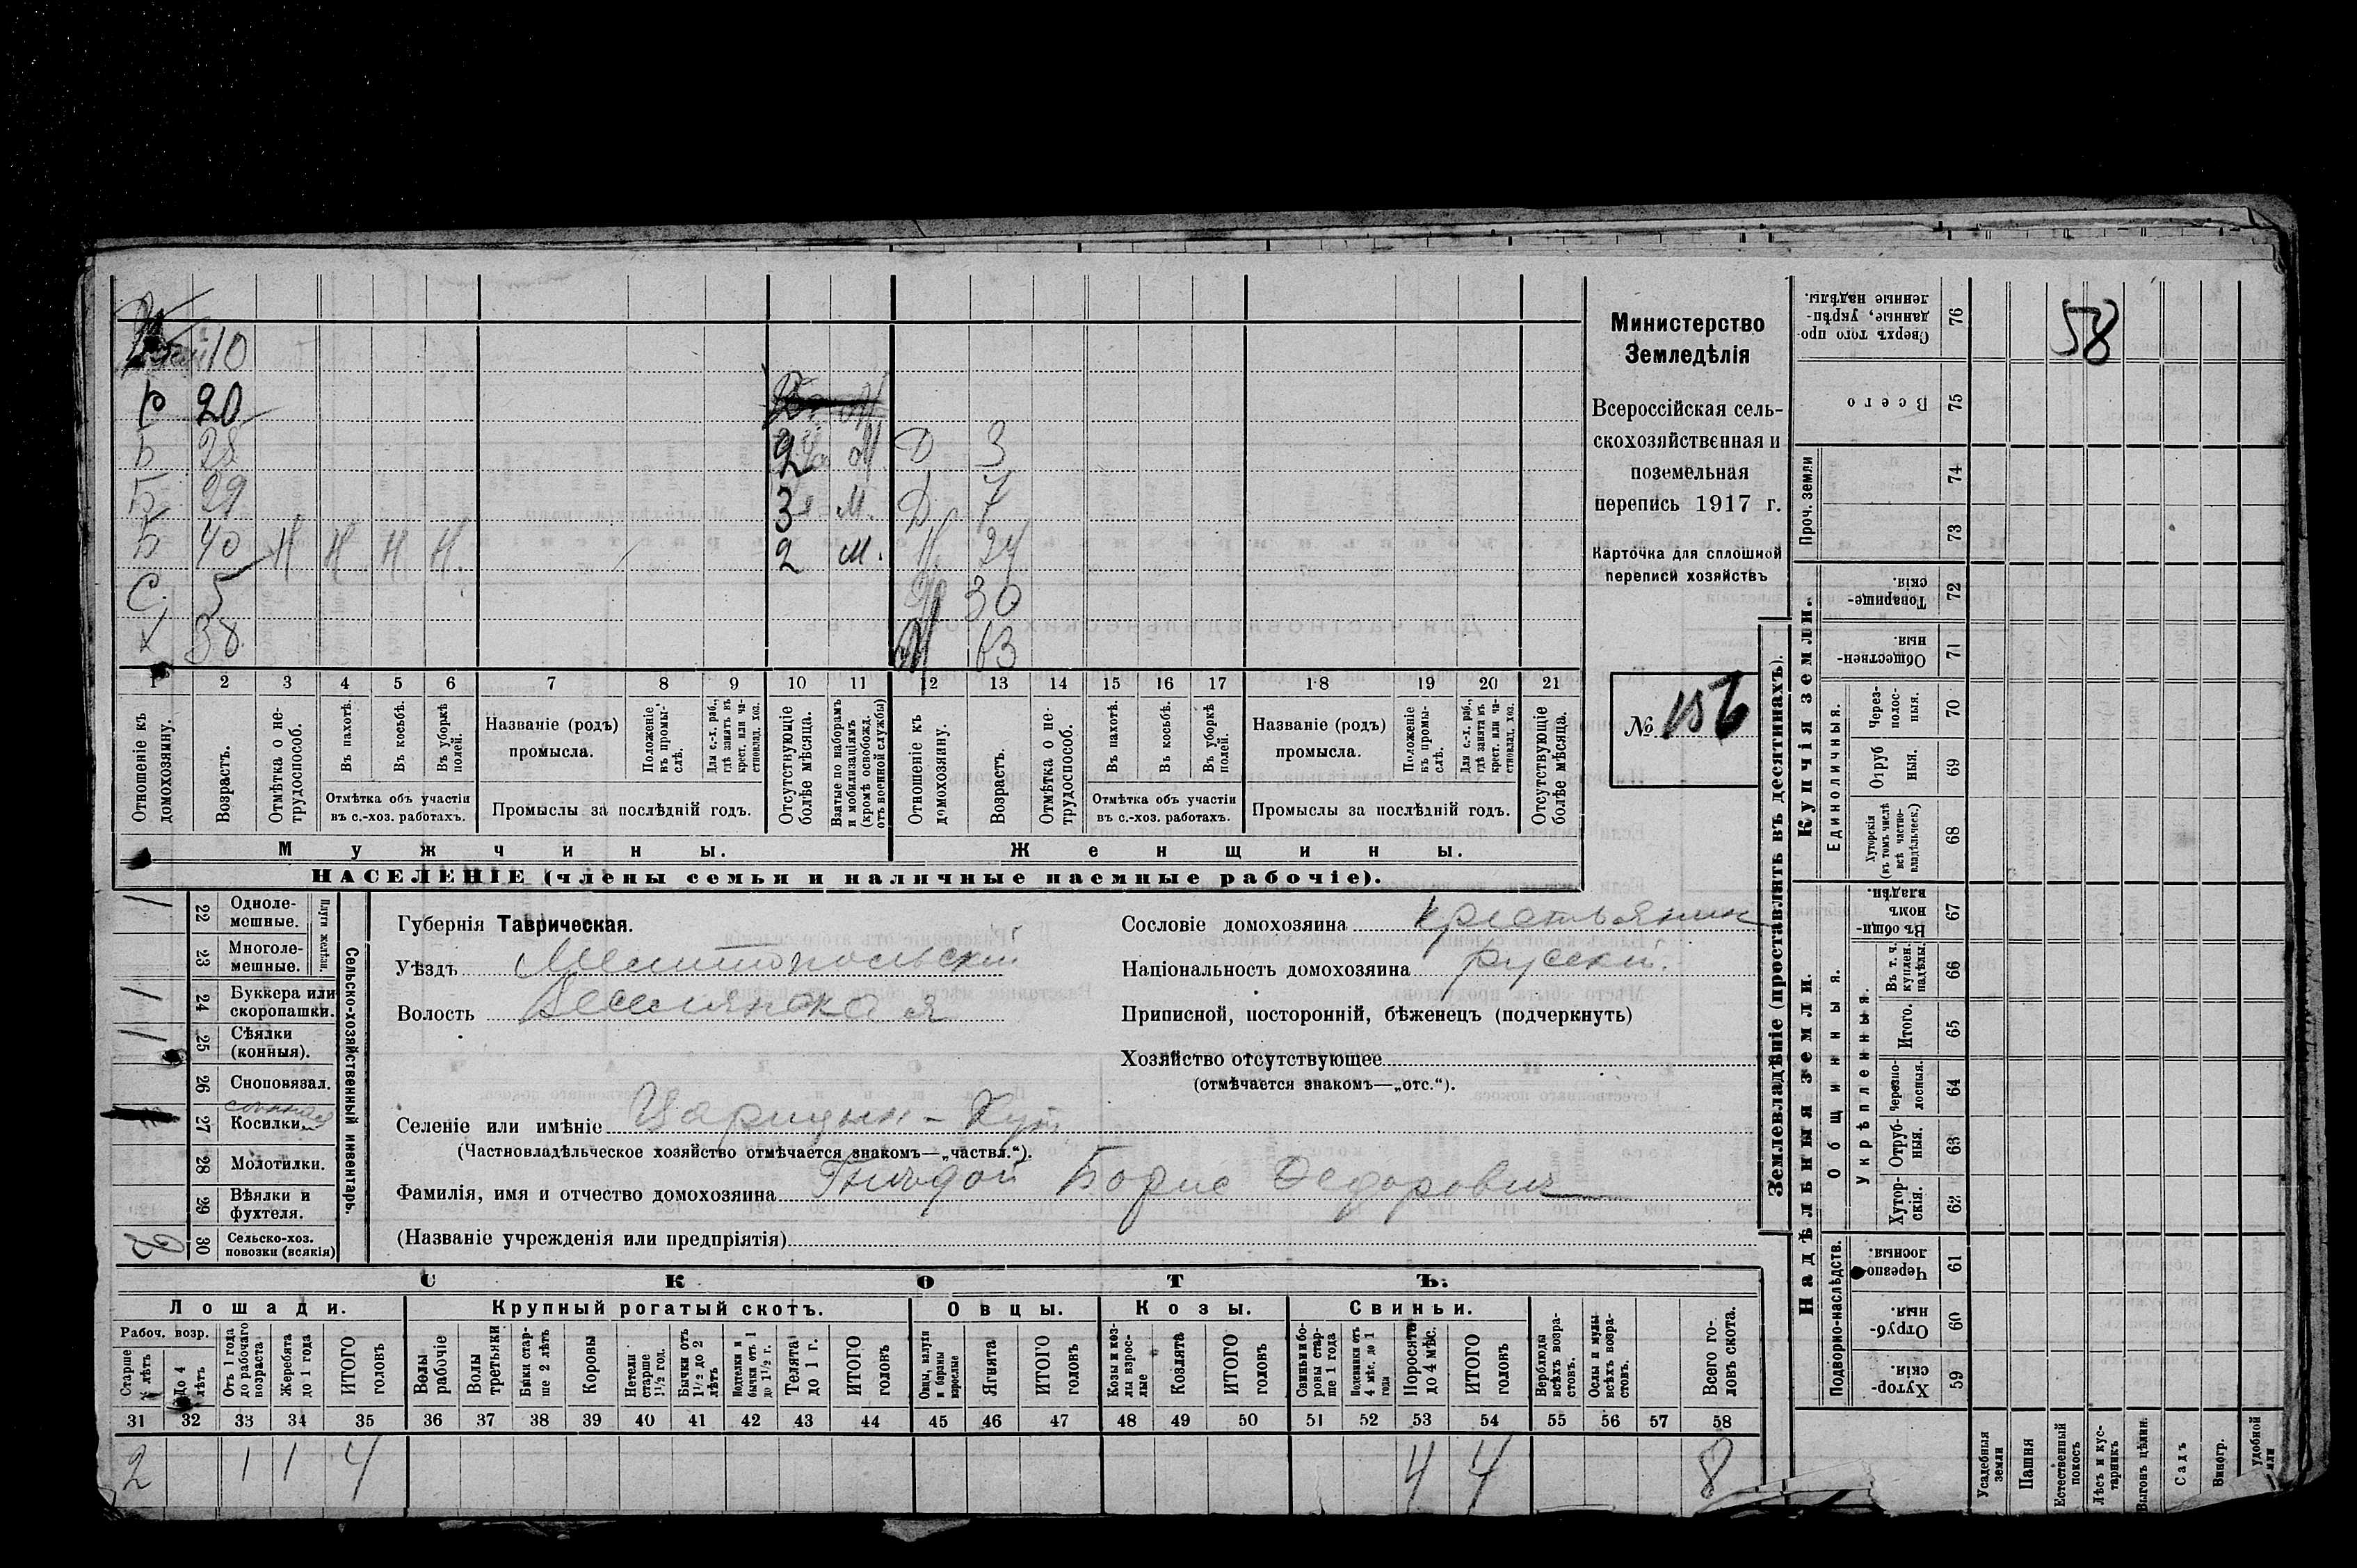 58
10
Р 20
Б 28 2 М Д 3
Б 29 3я М. Д 7
Б 40 Н Н Н Н. 2 М. Н. 24
С. 5 30
Х 38 М 63
1 2 3 4 5 6 7 8 9 10 11 12 13 14 15 16 17 18 19 20 21
Отношеніе къ домохозяину.
Возрастъ.
Отмѣтка о не-трудоспособ.
Въ пахотѣ.
Въ косьбѣ.
Въ уборкѣ полей.
Отмѣтка объ участіи въ с.-хоз. работахъ.
Названіе (родъ) промысла.
Положеніе въ промы-слѣ.
Для с.-х. раб., гдѣ занятъ въ крест. или ча-стновлад. хоз.
Промыслы за послѣдній годъ.
Отсутствующіе болѣе мѣсяца.
Взятые по наборамъ и мобилизаціямъ (кромѣ освобожд. отъ военной службы)
Отношеніе къ домохозяину.
Возрастъ.
Отмѣтка о не-трудоспособ.
Въ пахотѣ.
Въ косьбѣ.
Въ уборкѣ полей.
Отмѣтка объ участіи въ с.-хоз. работахъ.
Названіе (родъ) промысла.
Положеніе въ промы-слѣ.
Для с.-х. раб., гдѣ занятъ въ крест. или ча-стновлад. хоз.
Промыслы за послѣдній годъ.
Отсутствующіе болѣе мѣсяца.
Мужчины.
Женщины.
НАСЕЛЕНІЕ (члены семьи и наличные наемные рабочіе).
Министерство
Земледѣлія
Всероссійская сель-
скохозяйственная и
поземельная
перепись 1917 г.
Карточка для сплошной
переписи хозяйствъ
№ 156
1 22 Одноле-мешные.
23 Многоле-мешные.
Плуги желѣзн.
1 24 Буккера или скоропашки.
1 25 Сѣялки (конныя).
26 Сноповязал.
27 Косилки
28 Молотилки.
29 Вѣялки и фухтеля.
2 30 Сельско-хоз. повозки (всякія)
Сельско-хозяйственный инвентарь.
Губернія Таврическая.
Уѣздъ Мелитопольский
Волость Веселянская
Селеніе или имѣніе Царицын-Кут
(Частновладѣльческое хозяйство отмѣчается знакомъ—„частвл.“).
Фамилія, имя и отчество домохозяина Борис Федорович
(Названіе учрежденія или предпріятія)
Сословіе домохозяина крестьянин
Національность домохозяина русский.
Приписной, посторонній, бѣженецъ (подчеркнуть)
Хозяйство отсутствующее
(отмѣчается знакомъ—„отс.“).
СКОТЪ.
Лошади. Крупный рогатый скотъ. Овцы. Козы. Свиньи.
Рабоч. возр.
Старше 4 лѣтъ
До 4 лѣтъ
Отъ 1 года до рабочаго возраста
Жеребята до 1 года
ИТОГО головъ
Волы рабочіе
Волы третьяки
Быки стар-ше 2 лѣтъ
Коровы
Нетели старше 1½ год.
Бычки отъ 1½ до 2 лѣтъ
Подтелки и бычки отъ 1 до 1½ г.
Телята до 1 г.
ИТОГО головъ
Овцы, валухи и бараны взрослые
Ягнята
ИТОГО головъ
Козы и коз-лы взрос-лые
Козлята
ИТОГО головъ
Свиньи и бо-ровы стар-ше 1 года
Подсвинки отъ 4 мѣс. до 1 года
Поросята до 4 мѣс.
ИТОГО головъ
Верблюды всѣхъ возра-стовъ.
Ослы и мулы всѣхъ возра-стовъ.
Всего го-ловъ скота.
31 32 33 34 35 36 37 38 39 40 41 42 43 44 45 46 47 48 49 50 51 52 53 54 55 56 57 58
2 1 1 4 4 4 8
Землевладѣніе (проставлять въ десятинахъ).
Сверхъ того про-данные, укрѣп-ленные надѣлы. 76
Всего 75
Проч. земли 74 73
Купчія земли.
Товарище-скія. 72
Обществен-ныя. 71
Единоличныя.
Через-полос-ныя. 70
Отруб-ныя. 69
Хуторскія (въ томъ числѣ всѣ частно-владѣльческ.) 68
Надѣльныя земли.
Общинныя.
Въ общи-номъ владѣн. 67
Укрѣпленныя.
Въ т. ч. куплен. надѣлы. 66
Итого. 65
Черезпо-лосныя. 64
Отруб-ныя. 63
Хутор-скія. 62
Подворно-наслѣдств.
Черезпо-лосныя. 61
Отруб-ныя. 60
Хутор-скія. 59
Усадебныя земли
Пашня
Естественный покосъ
Лѣсъ и кус-тарникъ
Выгонъ цѣлин.
Садъ
Виногр.
удобной